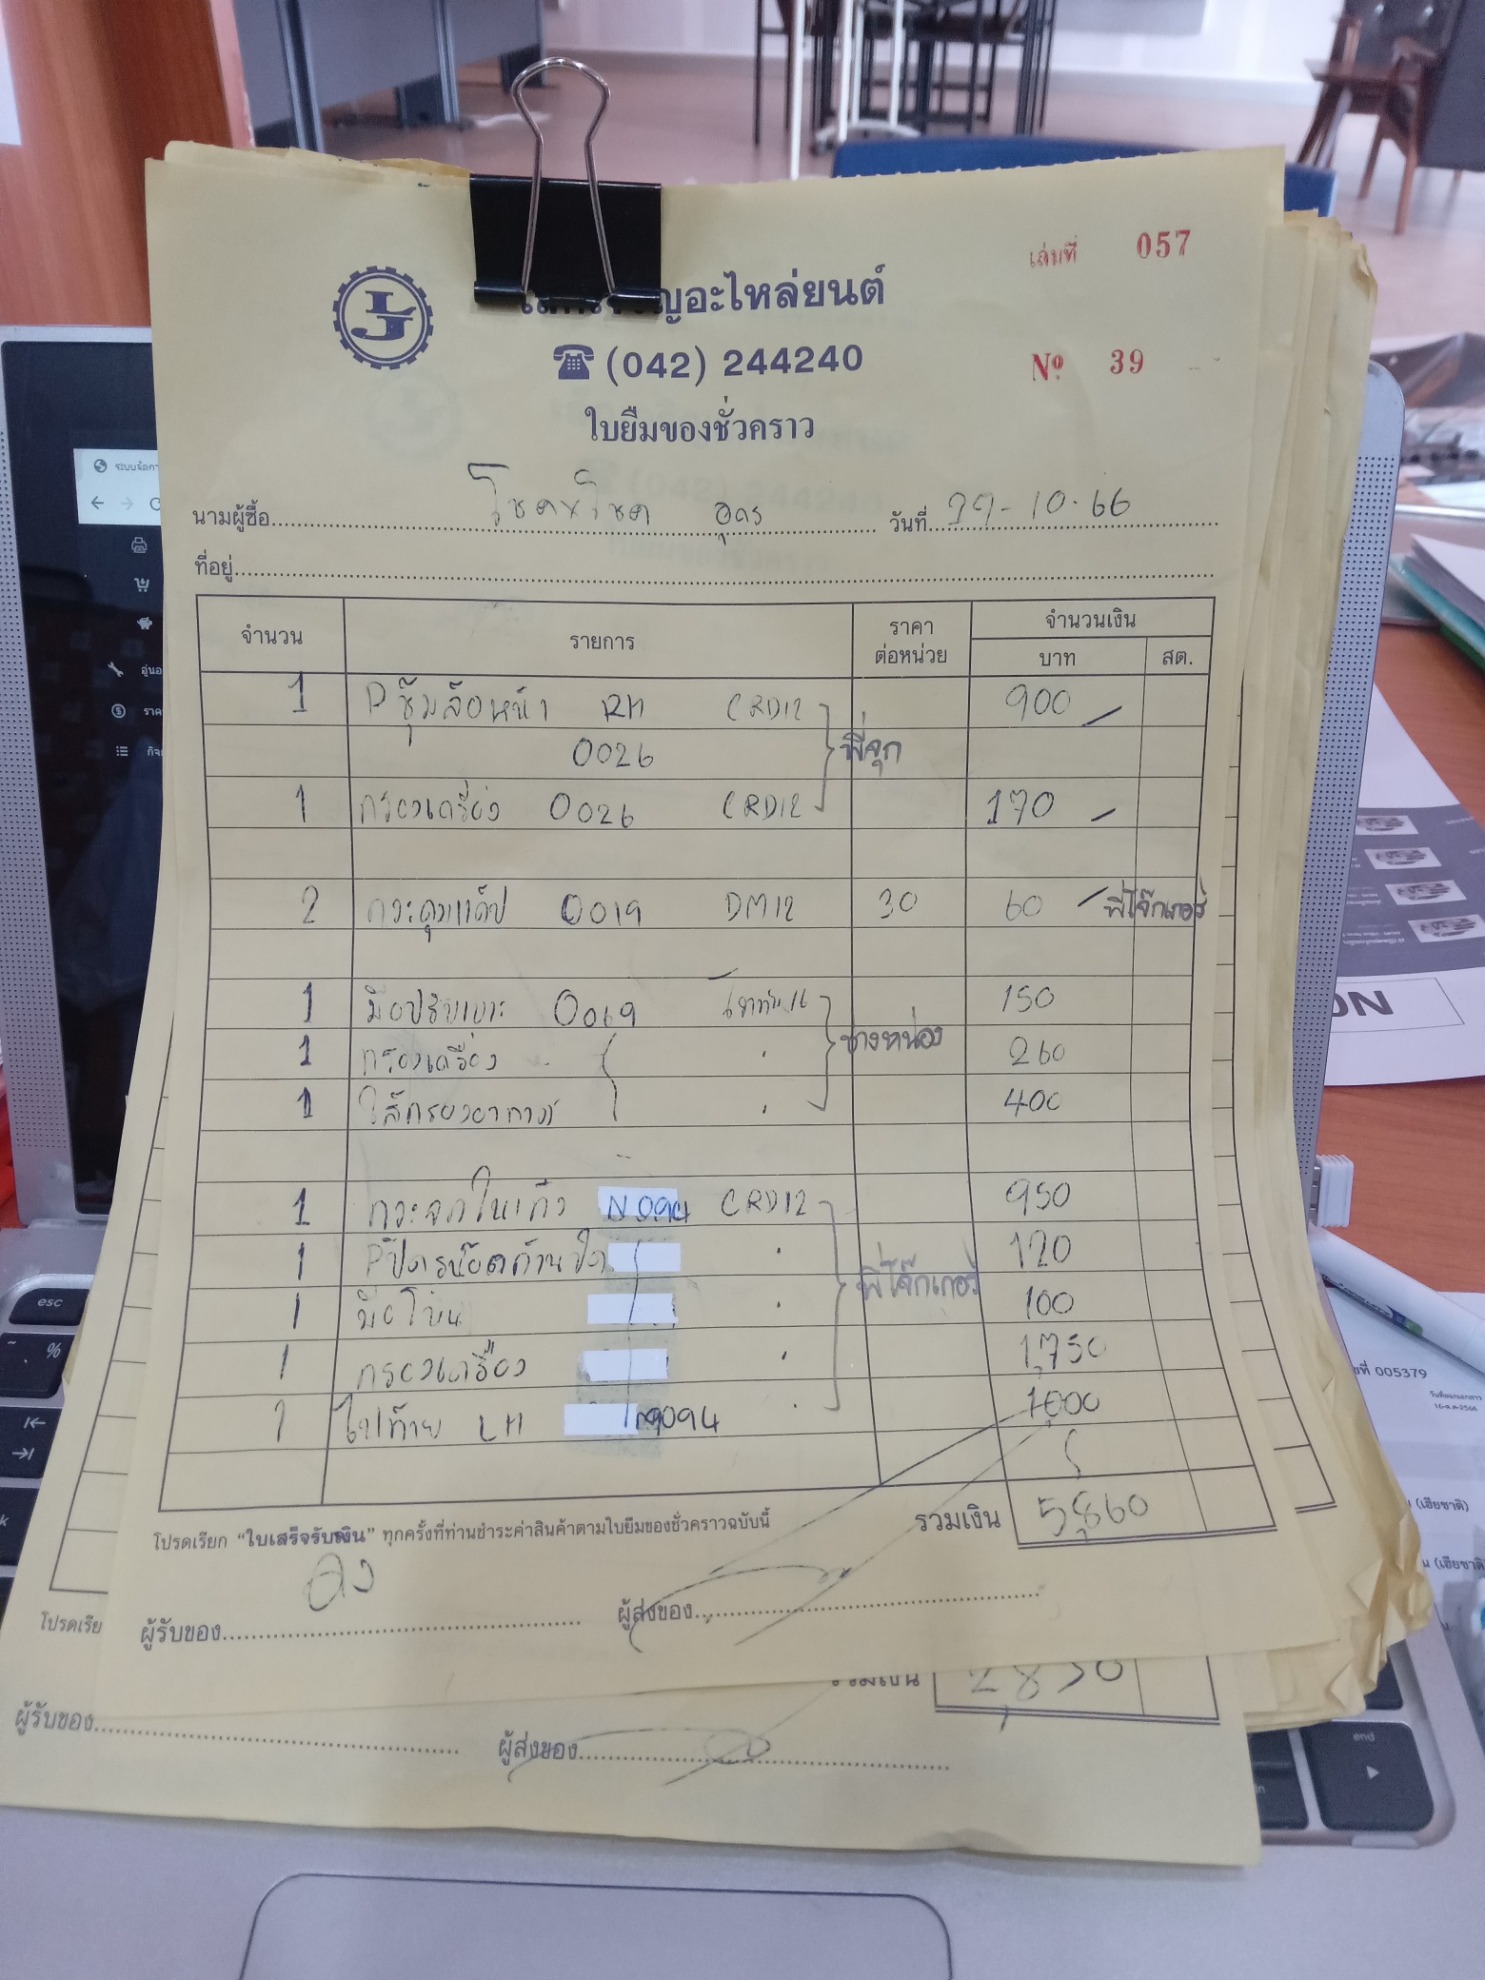 เล่มที่ 057
ญอะไหล่ยนต์
LJ
☎ (042) 244240
Nº 39
ใบยืมของชั่วคราว
นามผู้ซื้อ โชคทวีโชค อุดร วันที่ 29-10-66
ที่อยู่
จำนวน รายการ ราคาต่อหน่วย จำนวนเงิน
บาท สต.
1 P ซุ้มล้อหน้า RH CRD12 900
0026 พี่จุก
1 กรองเครื่อง 0026 CRD12 170
2 กระดุมแค๊ป 0019 DM12 30 60 พี่โจ๊กเกอร์
1 มือปรับเบาะ 0069 150
1 กรองเครื่อง ช่างหน่อง 260
1 ไส้กรองอากาศ 400
1 กระจกในเก๋ง N094 CRD12 950
1 120
1 มือโหน พี่โจ๊กเกอร์ 100
1 กรองเครื่อง 1,750
1 ไฟท้าย LH N9094 1,000
รวมเงิน 5,860
โปรดเรียก “ใบเสร็จรับเงิน” ทุกครั้งที่ท่านชำระค่าสินค้าตามใบยืมของชั่วคราวฉบับนี้
ผู้รับของ ผู้ส่งของ
โปรดเรีย
รวมเงิน 2,850
ผู้รับของ ผู้ส่งของ
ที่ 005379
(เฮียชาติ)
น (เฮียชาติ)
esc
end